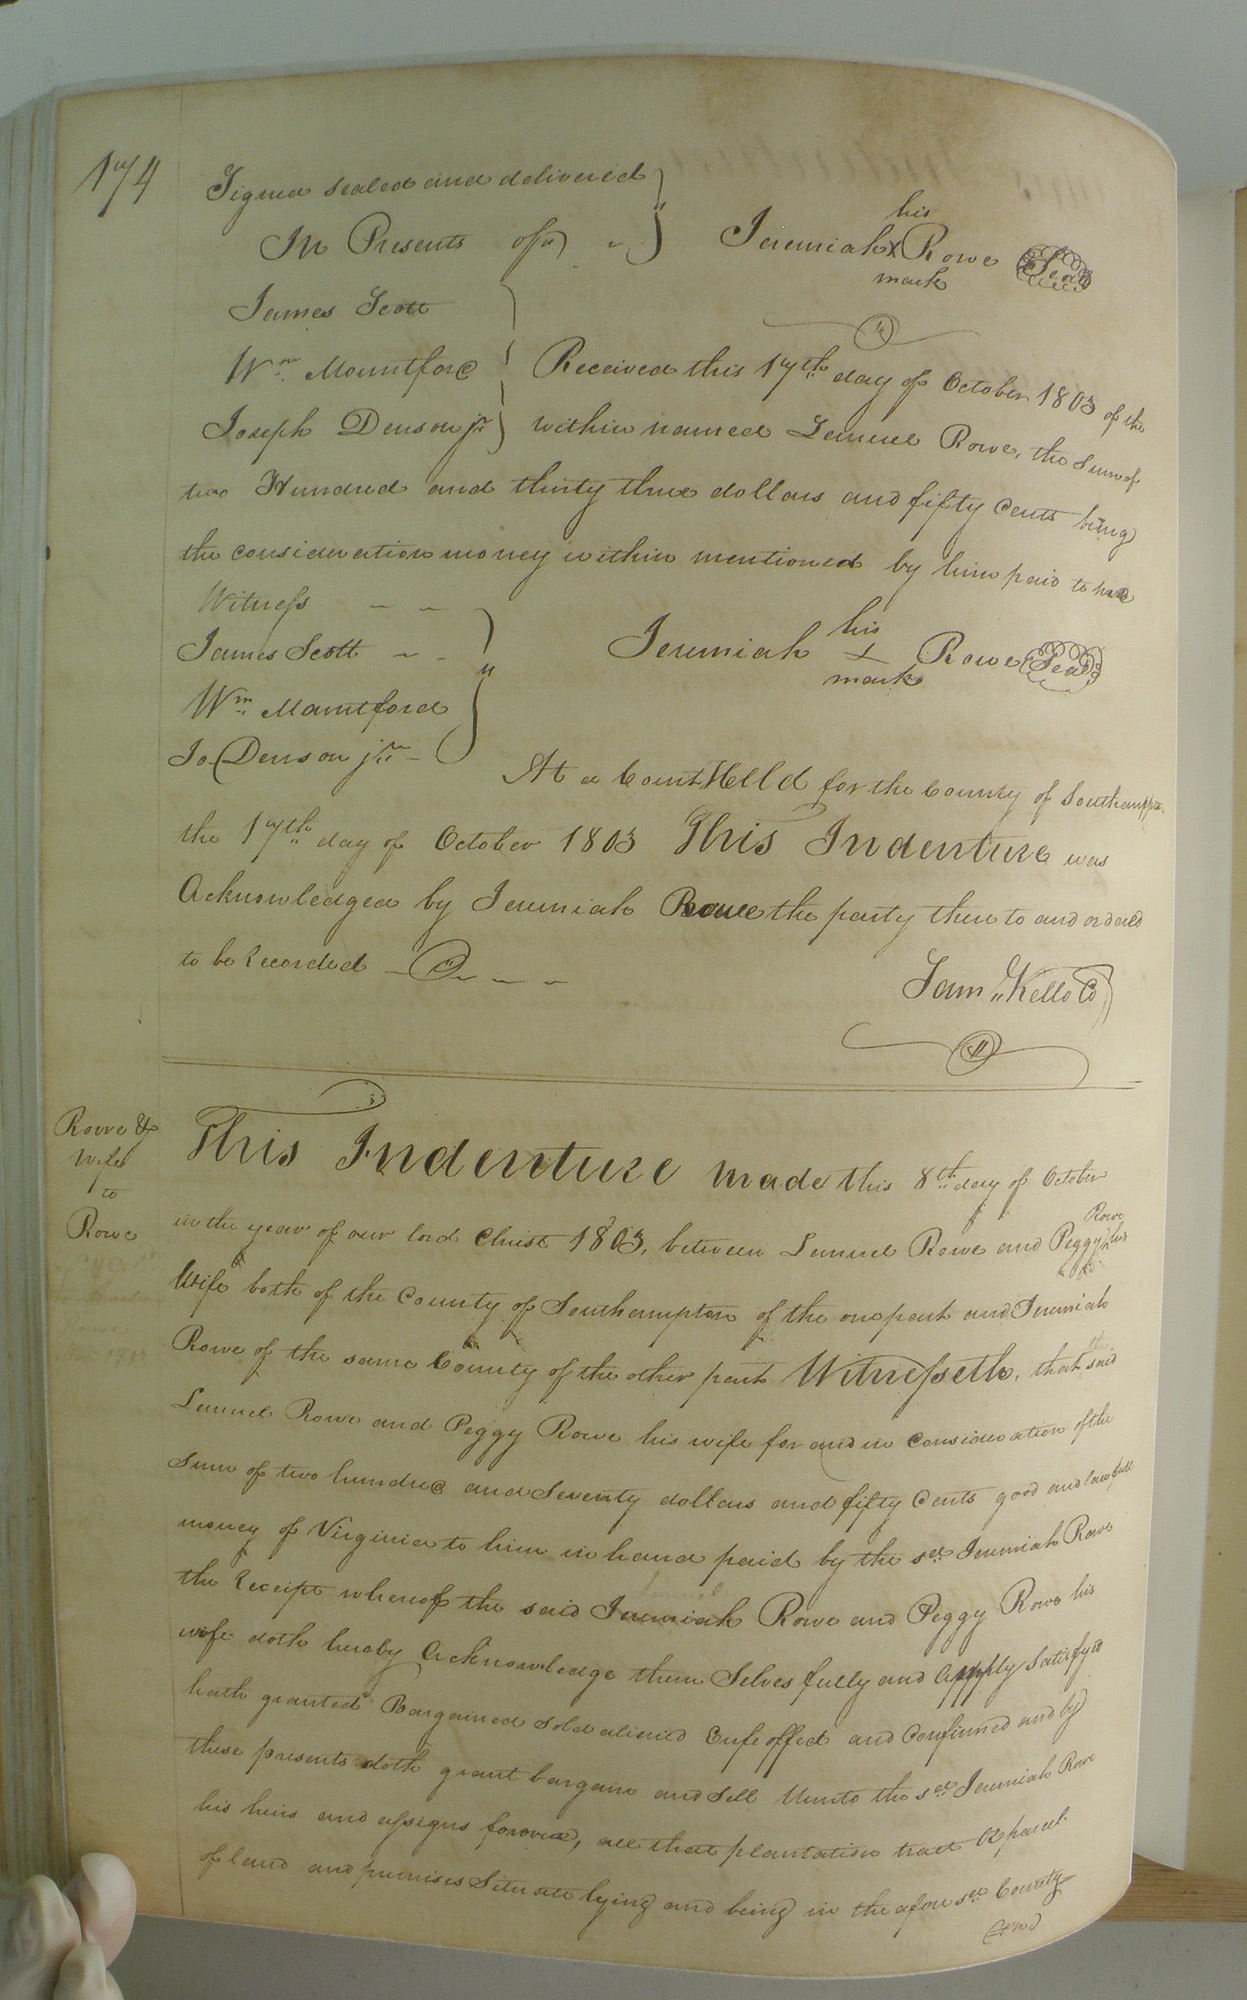 174
Signed sealed and delivered
In Presents off
his
Jeremiah X Rowe Seal
mark
James Scott
Wm Mountford
Received this 17th day of October 1803 of the
Joseph Denson jr within named Lemuel Rowe, the Sum of
two Hundred and thirty three dollars and fifty Cents being
the consideration money within mentioned by him paid to me
Witness
James Scott
his
Jeremiah + Rowe Seal
mark
Wm Mountford
Jo Denson jr
At a Court Helld for the County of Southampton
the 17th day of October 1803 This Indenture was
Acknowledged by Jeremiah Rowe the party there to and ordered
to be Recorded
Sam Kello CC
Rowe &
Wife
to
Rowe
This Indenture made this 8th day of October
in the year of our lord Christ 1803, between Lemuel Rowe and Peggy Rowe his
Wife both of the County of Southampton of the one part and Jeremiah
Rowe of the same County of the other part Witnesseth, that the said
Lemuel Rowe and Peggy Rowe his wife for and in Consideration of the
Sum of two hundred and Seventy dollars and fifty Cents good and lawfull
money of Virginia to him in hand paid by the sd Jeremiah Rowe
the Receipt whereof the said Jeremiah Rowe and Peggy Rowe his
wife doth hereby Acknowledge them Selves fully and Apply Satisfyed
hath granted Bargained Sold aliened Enfeoffed and Confirmed and by
these presents doth grant bargain and Sell Unto the sd Jeremiah Rowe
his heirs and assigns forever, all that plantation tract Or parcel
of land and premises Situate lying and being in the afore sd County
and